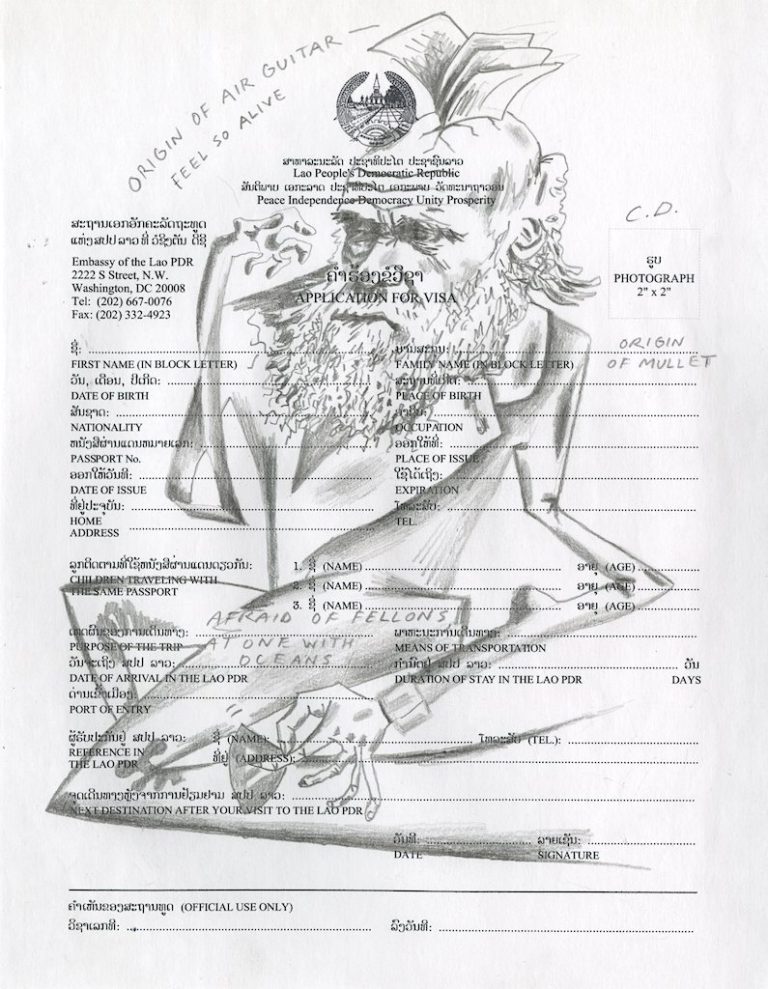 ORIGIN OF AIR GUITAR
FEEL SO ALIVE
ສາທາລະນະລັດ ປະຊາທິປະໄຕ ປະຊາຊົນລາວ
Lao People's Democratic Republic
ສັນຕິພາບ ເອກະລາດ ປະຊາທິປະໄຕ ເອກະພາບ ວັດທະນາຖາວອນ
Peace Independence Democracy Unity Prosperity
C.D.
ສະຖານເອກອັກຄະລັດຖະທູດ
ແຫ່ງ ສປປ ລາວ ທີ່ ວໍຊິງຕັນ ດີຊີ
Embassy of the Lao PDR
2222 S Street, N.W.
Washington, DC 20008
Tel: (202) 667-0076
Fax: (202) 332-4923
ຮູບ
PHOTOGRAPH
2" x 2"
ຄໍາຮ້ອງຂໍວີຊາ
APPLICATION FOR VISA
ORIGIN
OF MULLET
ຊື່:
FIRST NAME (IN BLOCK LETTER)
ນາມສະກຸນ:
FAMILY NAME (IN BLOCK LETTER)
ວັນ, ເດືອນ, ປີເກີດ:
DATE OF BIRTH
ສະຖານທີ່ເກີດ:
PLACE OF BIRTH
ສັນຊາດ:
NATIONALITY
ອາຊີບ:
OCCUPATION
ຫນັງສືຜ່ານແດນຫມາຍເລກ:
PASSPORT No.
ອອກໃຫ້ທີ່:
PLACE OF ISSUE
ອອກໃຫ້ວັນທີ:
DATE OF ISSUE
ໃຊ້ໄດ້ເຖິງ:
EXPIRATION
ທີ່ຢູ່ປະຈຸບັນ:
HOME
ADDRESS
ໂທລະສັບ:
TEL.
ລູກຕິດຕາມທີ່ໃຊ້ຫນັງສືຜ່ານແດນດຽວກັນ:
CHILDREN TRAVELING WITH
THE SAME PASSPORT
1. ຊື່ (NAME) ອາຍຸ (AGE)
2. ຊື່ (NAME) ອາຍຸ (AGE)
3. ຊື່ (NAME) ອາຍຸ (AGE)
AFRAID OF FELLONS,
AT ONE WITH
OCEANS
ເຫດຜົນຂອງການເດີນທາງ:
PURPOSE OF THE TRIP
ພາຫະນະການເດີນທາງ:
MEANS OF TRANSPORTATION
ວັນຈະເຖິງ ສປປ ລາວ:
DATE OF ARRIVAL IN THE LAO PDR
ກໍານົດຢູ່ ສປປ ລາວ: ວັນ
DURATION OF STAY IN THE LAO PDR DAYS
ດ່ານເຂົ້າເມືອງ:
PORT OF ENTRY
ຜູ້ຮັບປະກັນຢູ່ ສປປ ລາວ:
REFERENCE IN
THE LAO PDR
ຊື່ (NAME): ໂທລະສັບ (TEL.):
ທີ່ຢູ່ (ADDRESS):
ຈຸດເດີນທາງຫຼັງຈາກການຢ້ຽມຢາມ ສປປ ລາວ:
NEXT DESTINATION AFTER YOUR VISIT TO THE LAO PDR
ວັນທີ: ລາຍເຊັນ:
DATE SIGNATURE
ຄໍາເຫັນຂອງສະຖານທູດ (OFFICIAL USE ONLY)
ວີຊາເລກທີ: ລົງວັນທີ: